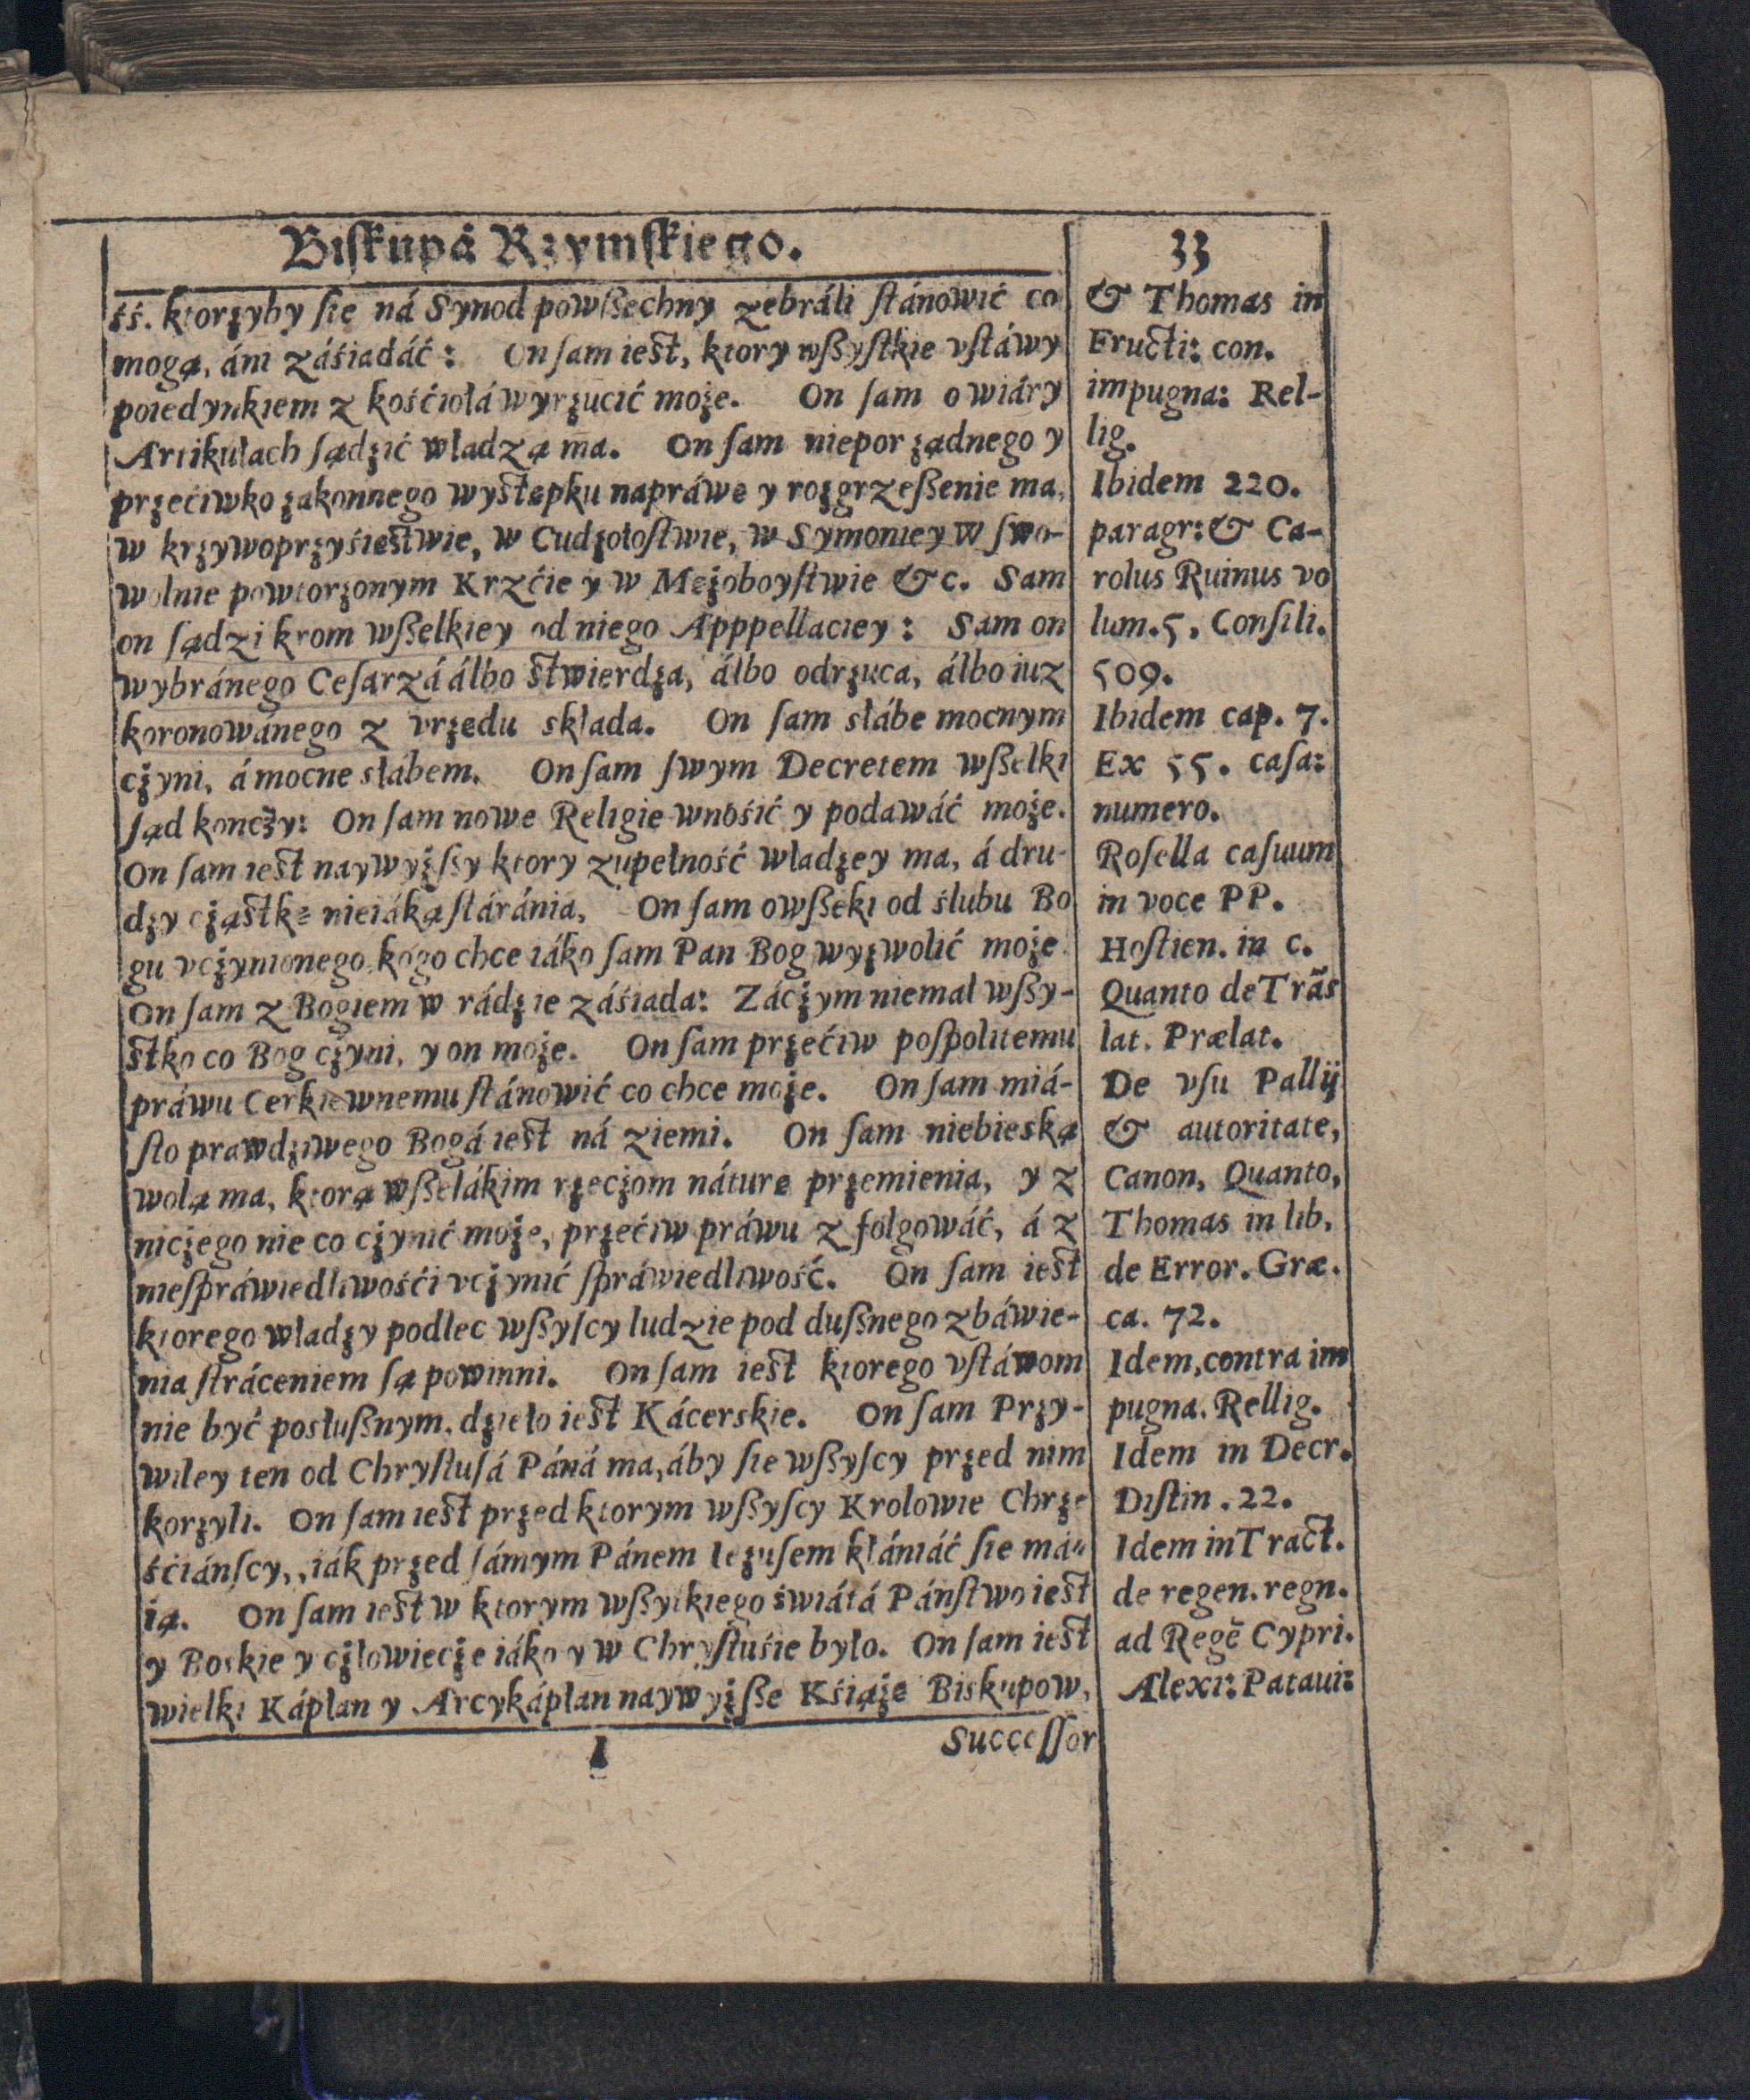 Biſkupá Rzymſkiego.
33
śś. ktorzyby ſie ná Synod powßechny zebráli ſtánowić co
mogą, áni záśiadáć: On ſam ieſt, ktory wßyſtkie vſtáwy
poiedynkiem z kośćiołá wyrzucić może. On ſam o wiáry
Artikułach ſądzić władzą ma. On ſam nieporządnego y
przećiwko zakonnego wyſtępku napráwę y rozgrzeßenie ma,
w krzywoprzyśięſtwie, w Cudzołoſtwie, w Symoniey w ſwo-
wolnie powtorzonym Krzćie y w Mężoboyſtwie &c. Sam
on ſądzi krom wßelkiey od niego Apppellaciey: Sam on
wybránego Ceſarzá álbo ſtwierdza, álbo odrzuca, álbo iuz
koronowánego z vrzędu składa. On ſam słábe mocnym
czyni, á mocne słabem. On ſam ſwym Decretem wßelki
ſąd konczy: On ſam nowe Religie wnośić y podawáć może.
On ſam ieſt naywyżſzy ktory zupełność władzey ma, á dru-
dzy cżąſtkę nieiáką ſtáránia, On ſam owßeki od ślubu Bo
gu vcżynionego kogo chce iáko ſam Pan Bog wyzwolić może
On ſam z Bogiem w rádzie záśiada: Zácżym niemal wßy-
ſtko co Bog cżyni, y on może. On ſam przećiw poſpolitemu
práwu Cerkiewnemu ſtánowić co chce może. On ſam miá-
ſto prawdziwego Bogá ieſt ná ziemi. On ſam niebieską
wolą ma, ktorą wßelákim rzecżom náturę przemienia, y z
nicżego nie co cżynić może, przećiw práwu z folgowáć, á z
nieſpráwiedliwośći vcżynić ſpráwiedliwość. On ſam ieſt
ktorego władzy podlec wßyſcy ludzie pod dußnego zbáwie-
nia ſtráceniem ſą powinni. On ſam ieſt ktorego vſtáwom
nie być posłußnym, dzieło ieſt Kácerskie. On ſam Przy-
wiley ten od Chryſtuſá Páná ma, áby ſie wßyſcy przed nim
korzyli. On ſam ieſt przed ktorym wßyſcy Krolowie Chrze
śćiánſcy,, iák przed ſámym Pánem Iezuſem kłániáć ſie má-
ią. On ſam ieſt w ktorym wßytkiego świátá Páńſtwo ieſt
y Boskie y cżłowiecże iáko y w Chryſtuśie było. On ſam ieſt
wielki Káplan y Arcykápłan naywyżße Kśiążę Biskupow,
I
Succeſſor
& Thomas in
Eructi: con.
impugna: Rel-
lig.
Ibidem 220.
paragr: & Ca-
rolus Ruinus vo
lum. 5, Conſili.
509.
Ibidem cap. 7.
Ex 55. caſa:
numero.
Roſella caſuum
in voce PP.
Hoſtien. in c.
Quanto de Trãs
lat. Prælat.
De vſu Pallij
& autoritate,
Canon, Quanto,
Thomas in lib,
de Error. Græ.
ca. 72.
Idem, contra im
pugna. Rellig.
Idem in Decr.
Diſtin. 22.
Idem in Tract.
de regen. regn.
ad Regẽ Cypri.
Alexi: Pataui: